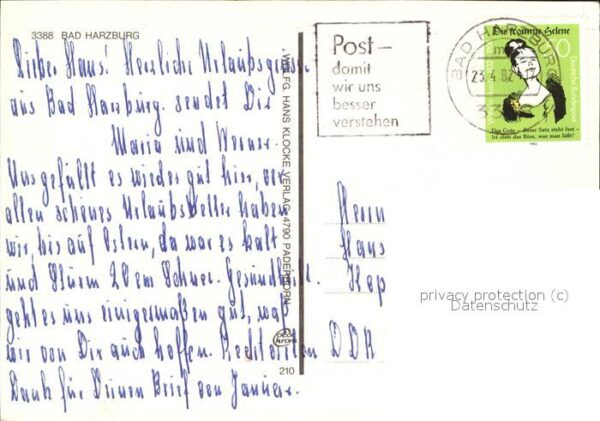 3388 BAD HARZBURG
Lieber Hans! Herzliche Urlaubsgrüsse
aus Bad Harzburg sendet Dir
Maria und Werner.
Uns gefällt es wieder gut hier, vor
allem schönes Urlaubswetter haben
wir, bis auf Ostern, da war es kalt
und Sturm 20 cm Schnee. Gesundheitl.
geht es uns einigermaßen gut, was
wir von Dir auch hoffen. Recht vielen
Dank für Deinen Brief von Januar.
WOLFG. HANS KLOCKE VERLAG, 4790 PADERBORN
210
Post –
damit
wir uns
besser
verstehen
BAD HARZBURG
23.4.82
33
Die fromme Helene
70
Deutsche Bundespost
Das Gute – dieser Satz steht fest –
Ist stets das Böse, was man läßt!
1982
Herrn
Hans
DDR
privacy protection (c)
Datenschutz